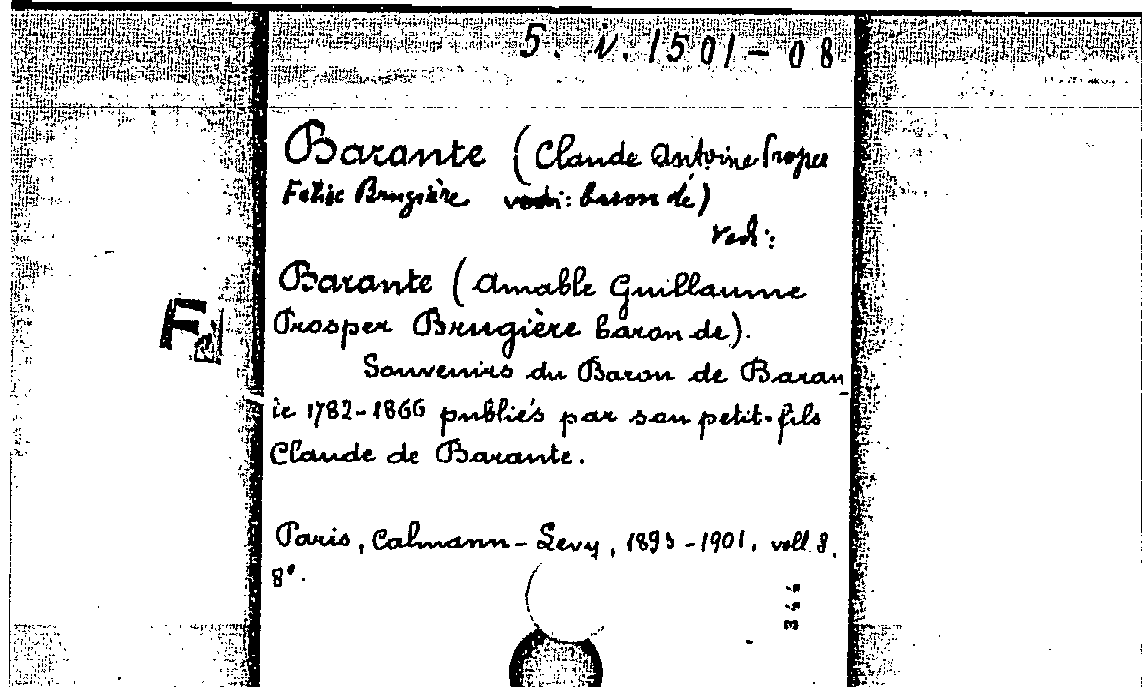 5. N. 1501-08
Barante (Claude Antoine Prosper
Félix Brugière baron de)
Vedi:
Barante (Amable Guillaume
Prosper Brugière baron de).
Souvenirs du Baron de Baran
te 1782-1866 publiés par son petit-fils
Claude de Barante.
Paris, Calmann-Levy, 1893-1901. voll. 8.
8°.
344